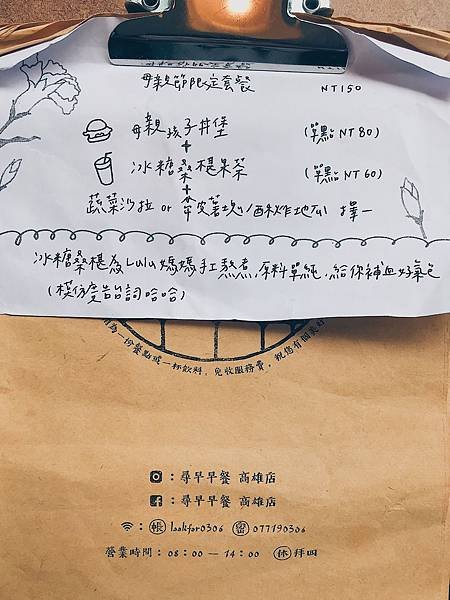 母親節限定套餐 NT150
母親孩子丼堡 (單點 NT 80)
+
冰糖桑椹果茶 (單點 NT 60)
+
蔬菜沙拉 or 帶皮薯塊/酥炸地瓜 擇一
冰糖桑椹為Lulu媽媽手工熬煮,原料單純,給你補血好氣色
(模仿廣告台詞哈哈)
為一份餐點或一杯飲料,免收服務費,祝您有個美好
:尋早早餐 高雄店
:尋早早餐 高雄店
:帳 lookfor0306 密 077190306
營業時間:08:00 — 14:00 休 拜四